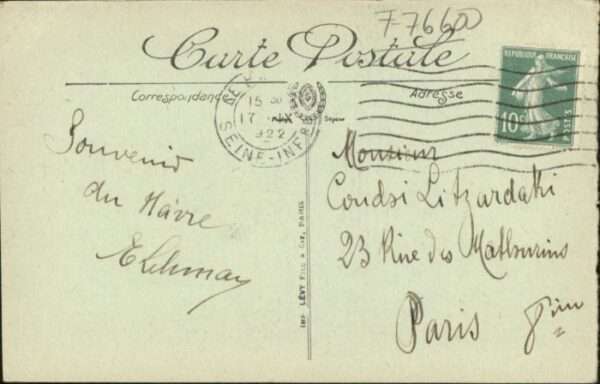 F-7660
Carte Postale
Correspondance
Adresse
RÉPUBLIQUE FRANÇAISE
10c
POSTES
15 30
17
1922
SEINE-INFRE
Souvenir
du Hâvre
Monsieur
Coudsi Litzardaki
23 Rue des Mathurins
Paris 8ime
IMP. LÉVY FILS & CIE, PARIS